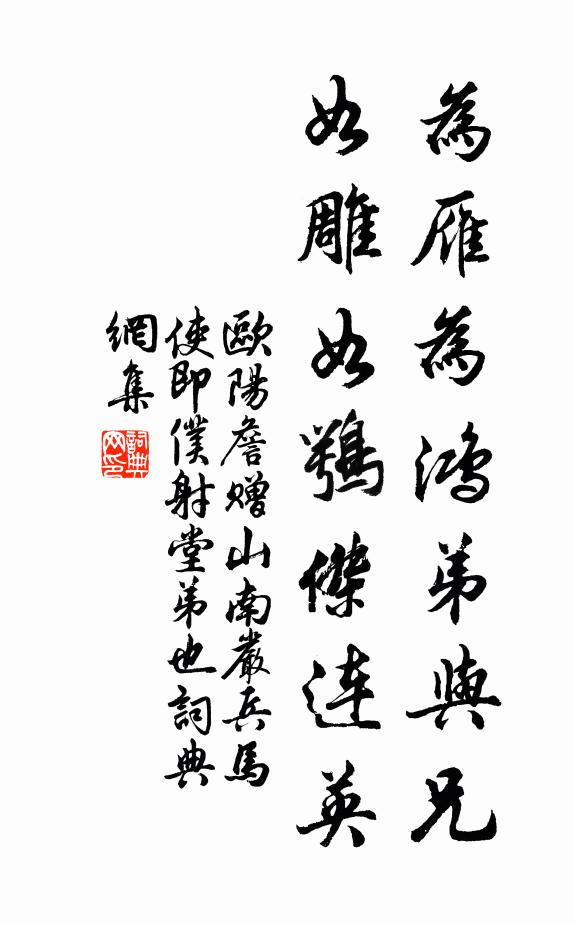 為雁為鴻弟與兄
如雕如鶚傑連英
歐陽詹贈山南嚴兵馬
使即僕射堂弟也詞典
網集
詞典
网印